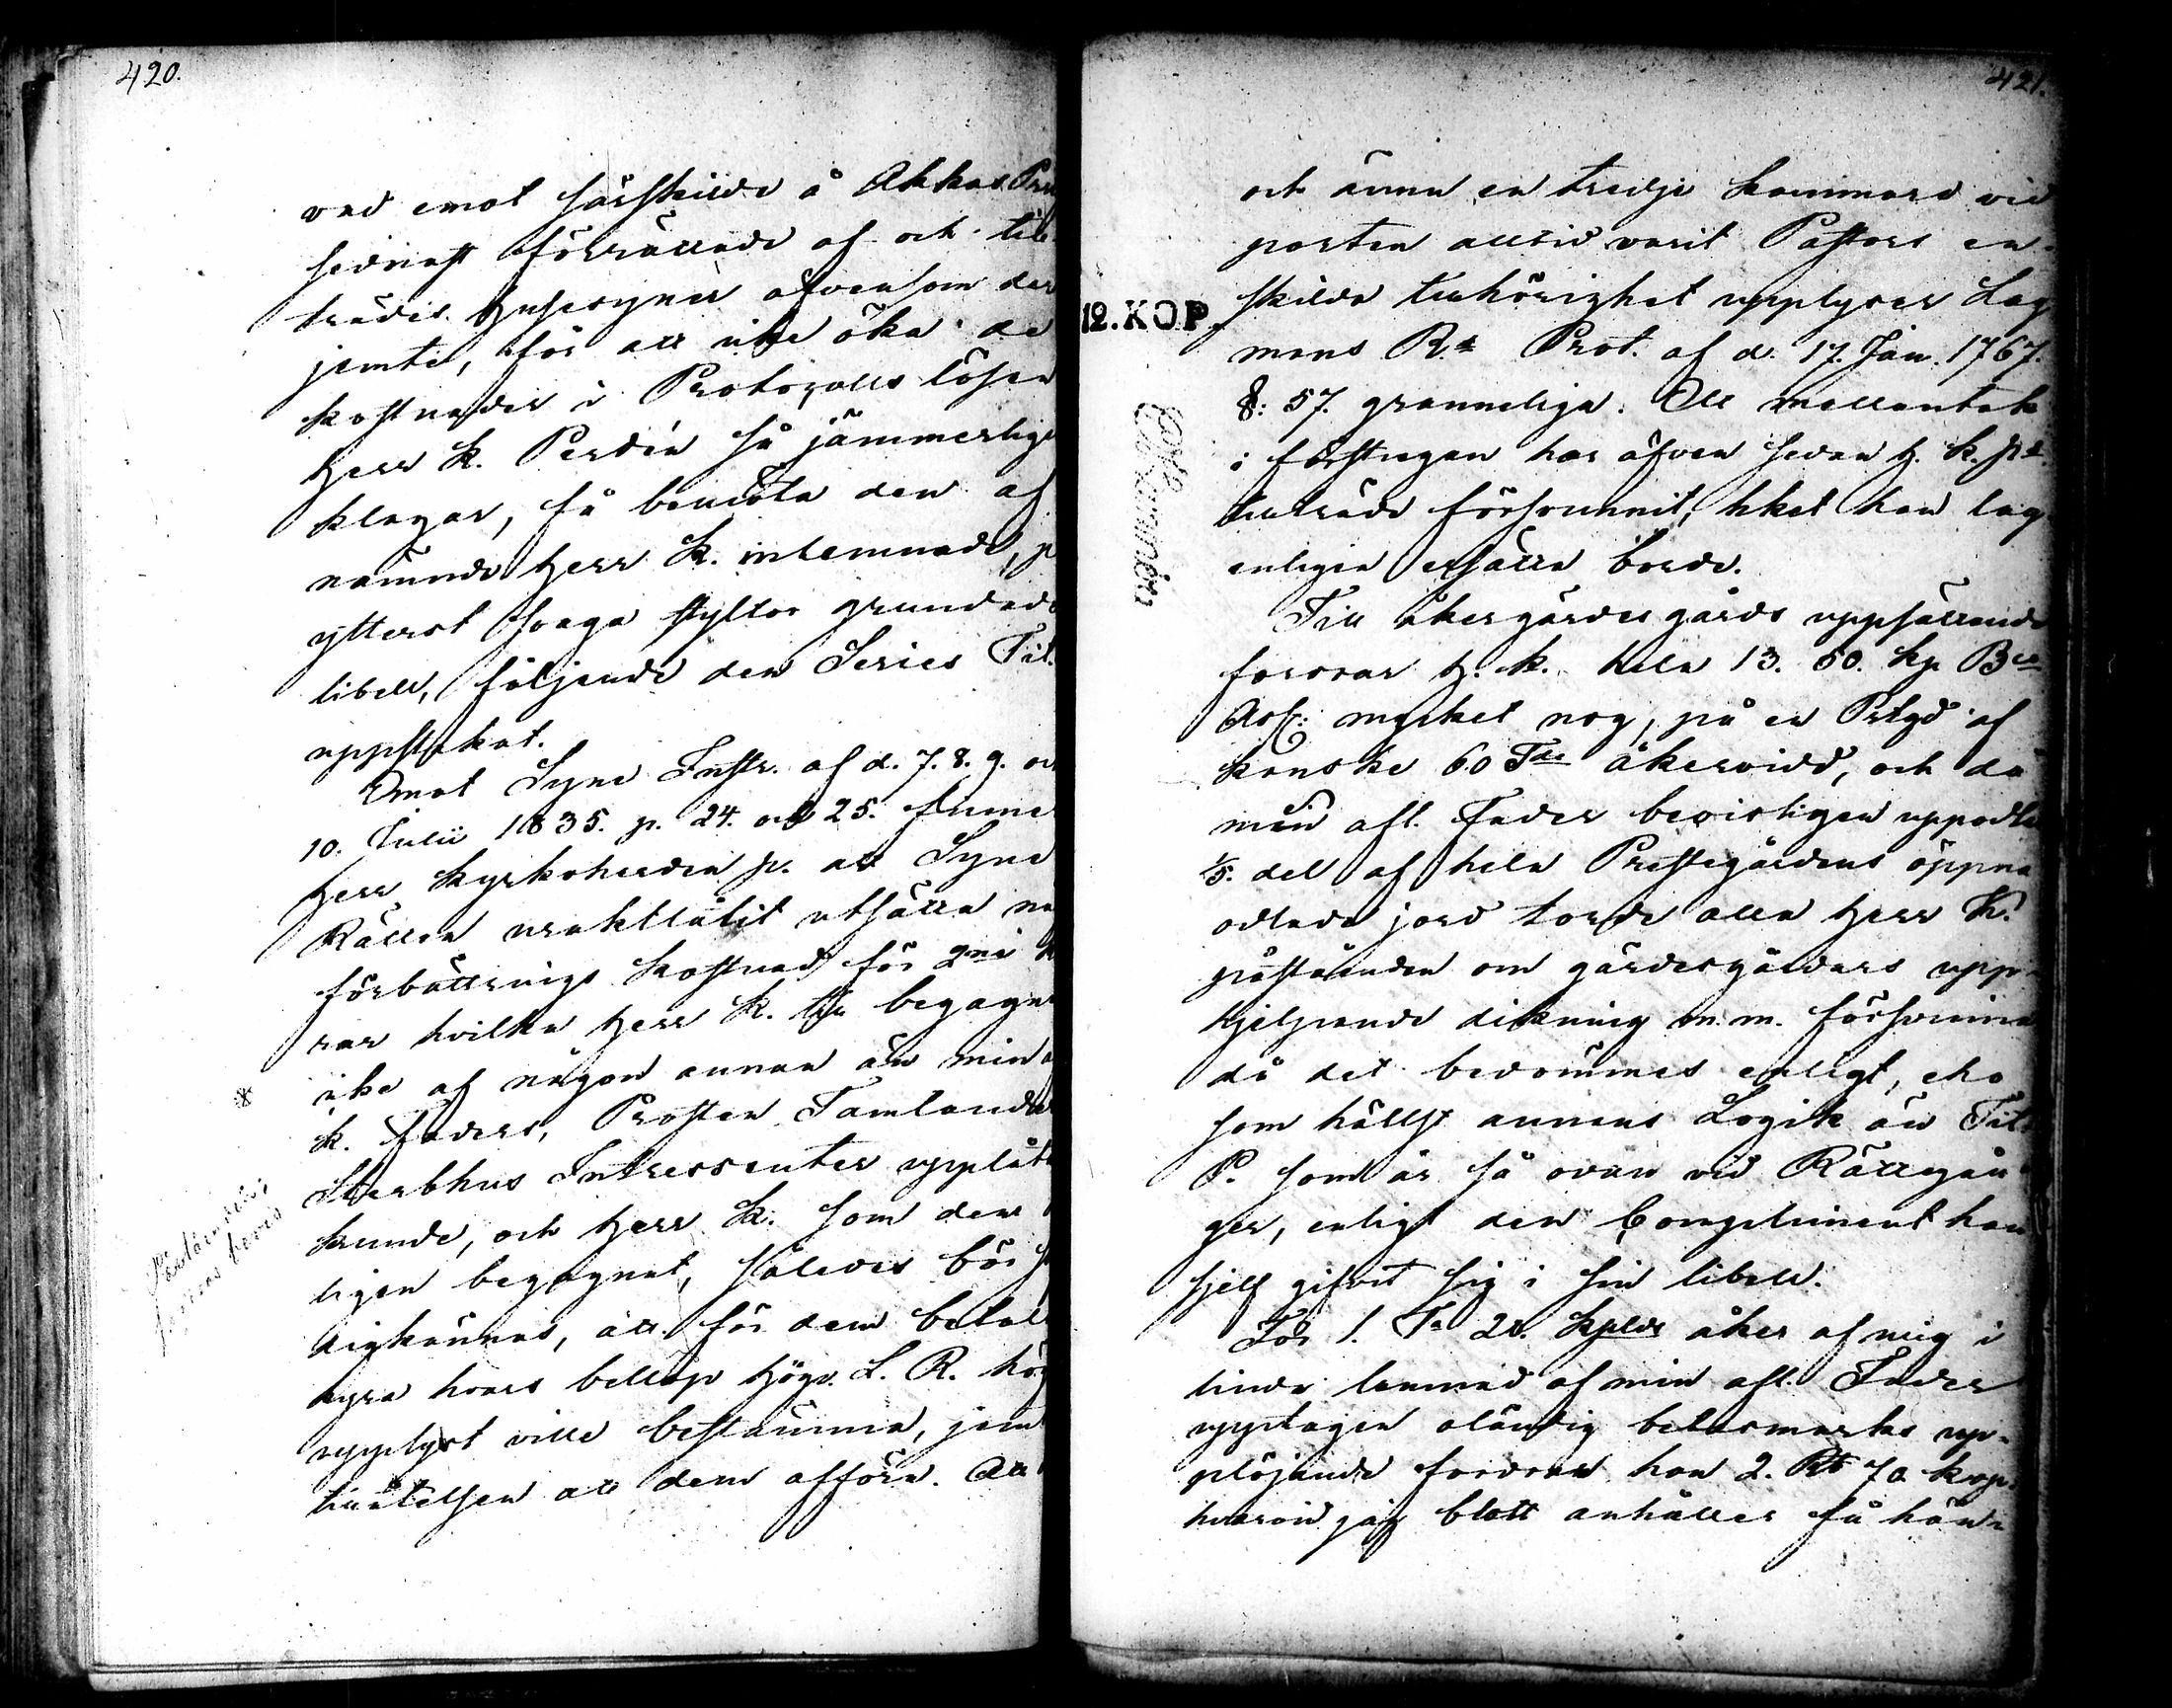 420.
vad emot särskilde å Akkas Prst
sednast förrättade af- och till-
trädes Husesyner äfvensom der
jemte, för att icke öka de
kostnader i Protocolls lösen
Herr K. Perdén så jämmerlige
klagar, få bemöta den af
nämnde Herr K. inlemnade, p
ytterst svaga styltor grundade
libell, följande den Series Tit.
uppstakat.
Emot Syne Instr. af d. 7. 8. 9. och
10. Julii 1835. p. 24. och 25. finner
Herr Kyrkoherden p. att Syne
Rätten uraktlåtit utsätta
förbättrings kostnad för 2ne
rar hvilka Herr K. till begagn
icke af någon annan än min
K. Faders, Prosten Tamlander
Sterbhus Intressenter upplåt
kunde, och Herr K. som dem
ligen begagnat, således bör
digkännas, att för dem betal
hyra hvars belopp Högv. L. R. hög
upplyst ville bestämma, jem
tillåtelsen att dem afföra. Att
421.
och ännu en tredje kammare vid
porten alltid varit Pastors en-
skilda tillhörighet upplyser Lag
mans R:s Prot. af d. 17. Jan. 1767.
§: 57. granneliga. Ett mellantak
i förstugan har äfven sedan H. K. p:s
tillträde försvunnit, hket han lag
enligen ersätta borde.
12. KOP.
Till åkergärdes gårds uppsättande
fordrar H. K. hela 13. 50. kp Bco
Ass: mycket nog, på en Prtgd af
kanske 60 T:rs åkervidd, och då
min afl. Fader bevisligen uppodlat
1/5. del af hela Prestegårdens öppna
odlada jord torde alla Herr K.
påståenden om gärdesgårdars upp-
hjelpande dikning m. m. försvinna
då det bedömmes enligt, eho
som hällst annans Logik än Tit.
P. som är så ovan vid Rättegån
gar, enligt den Compliment han
sjelf gifvit sig i sin libell.
För 1. T:a 28. Kplds åker af mig i
linda lemnad af min afl. Fader
upptagen oländig betesmarks up-
plöjande fordrar han 2. Rb 70 kop.
hvarvid jag blott anhåller få hän-